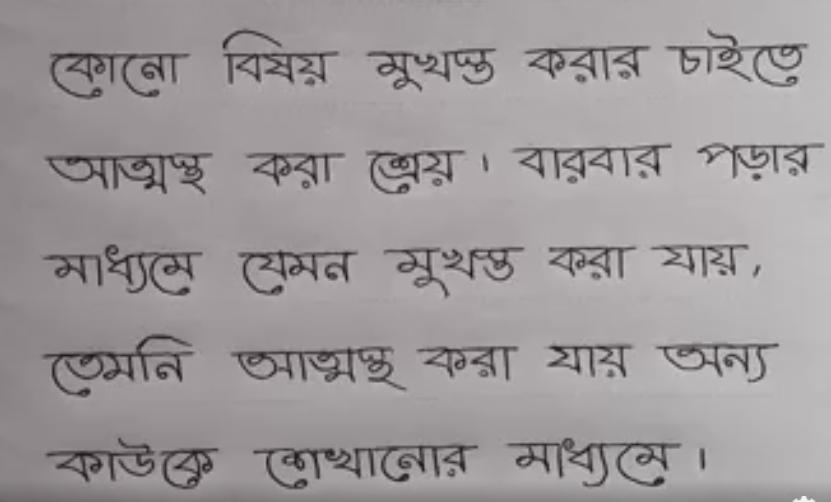 কোনো বিষয় মুখস্ত করার চাইতে
আত্মস্থ করা শ্রেয়। বারবার পড়ার
মাধ্যমে যেমন মুখস্ত করা যায়,
তেমনি আত্মস্থ করা যায় অন্য
কাউকে শেখানোর মাধ্যমে।